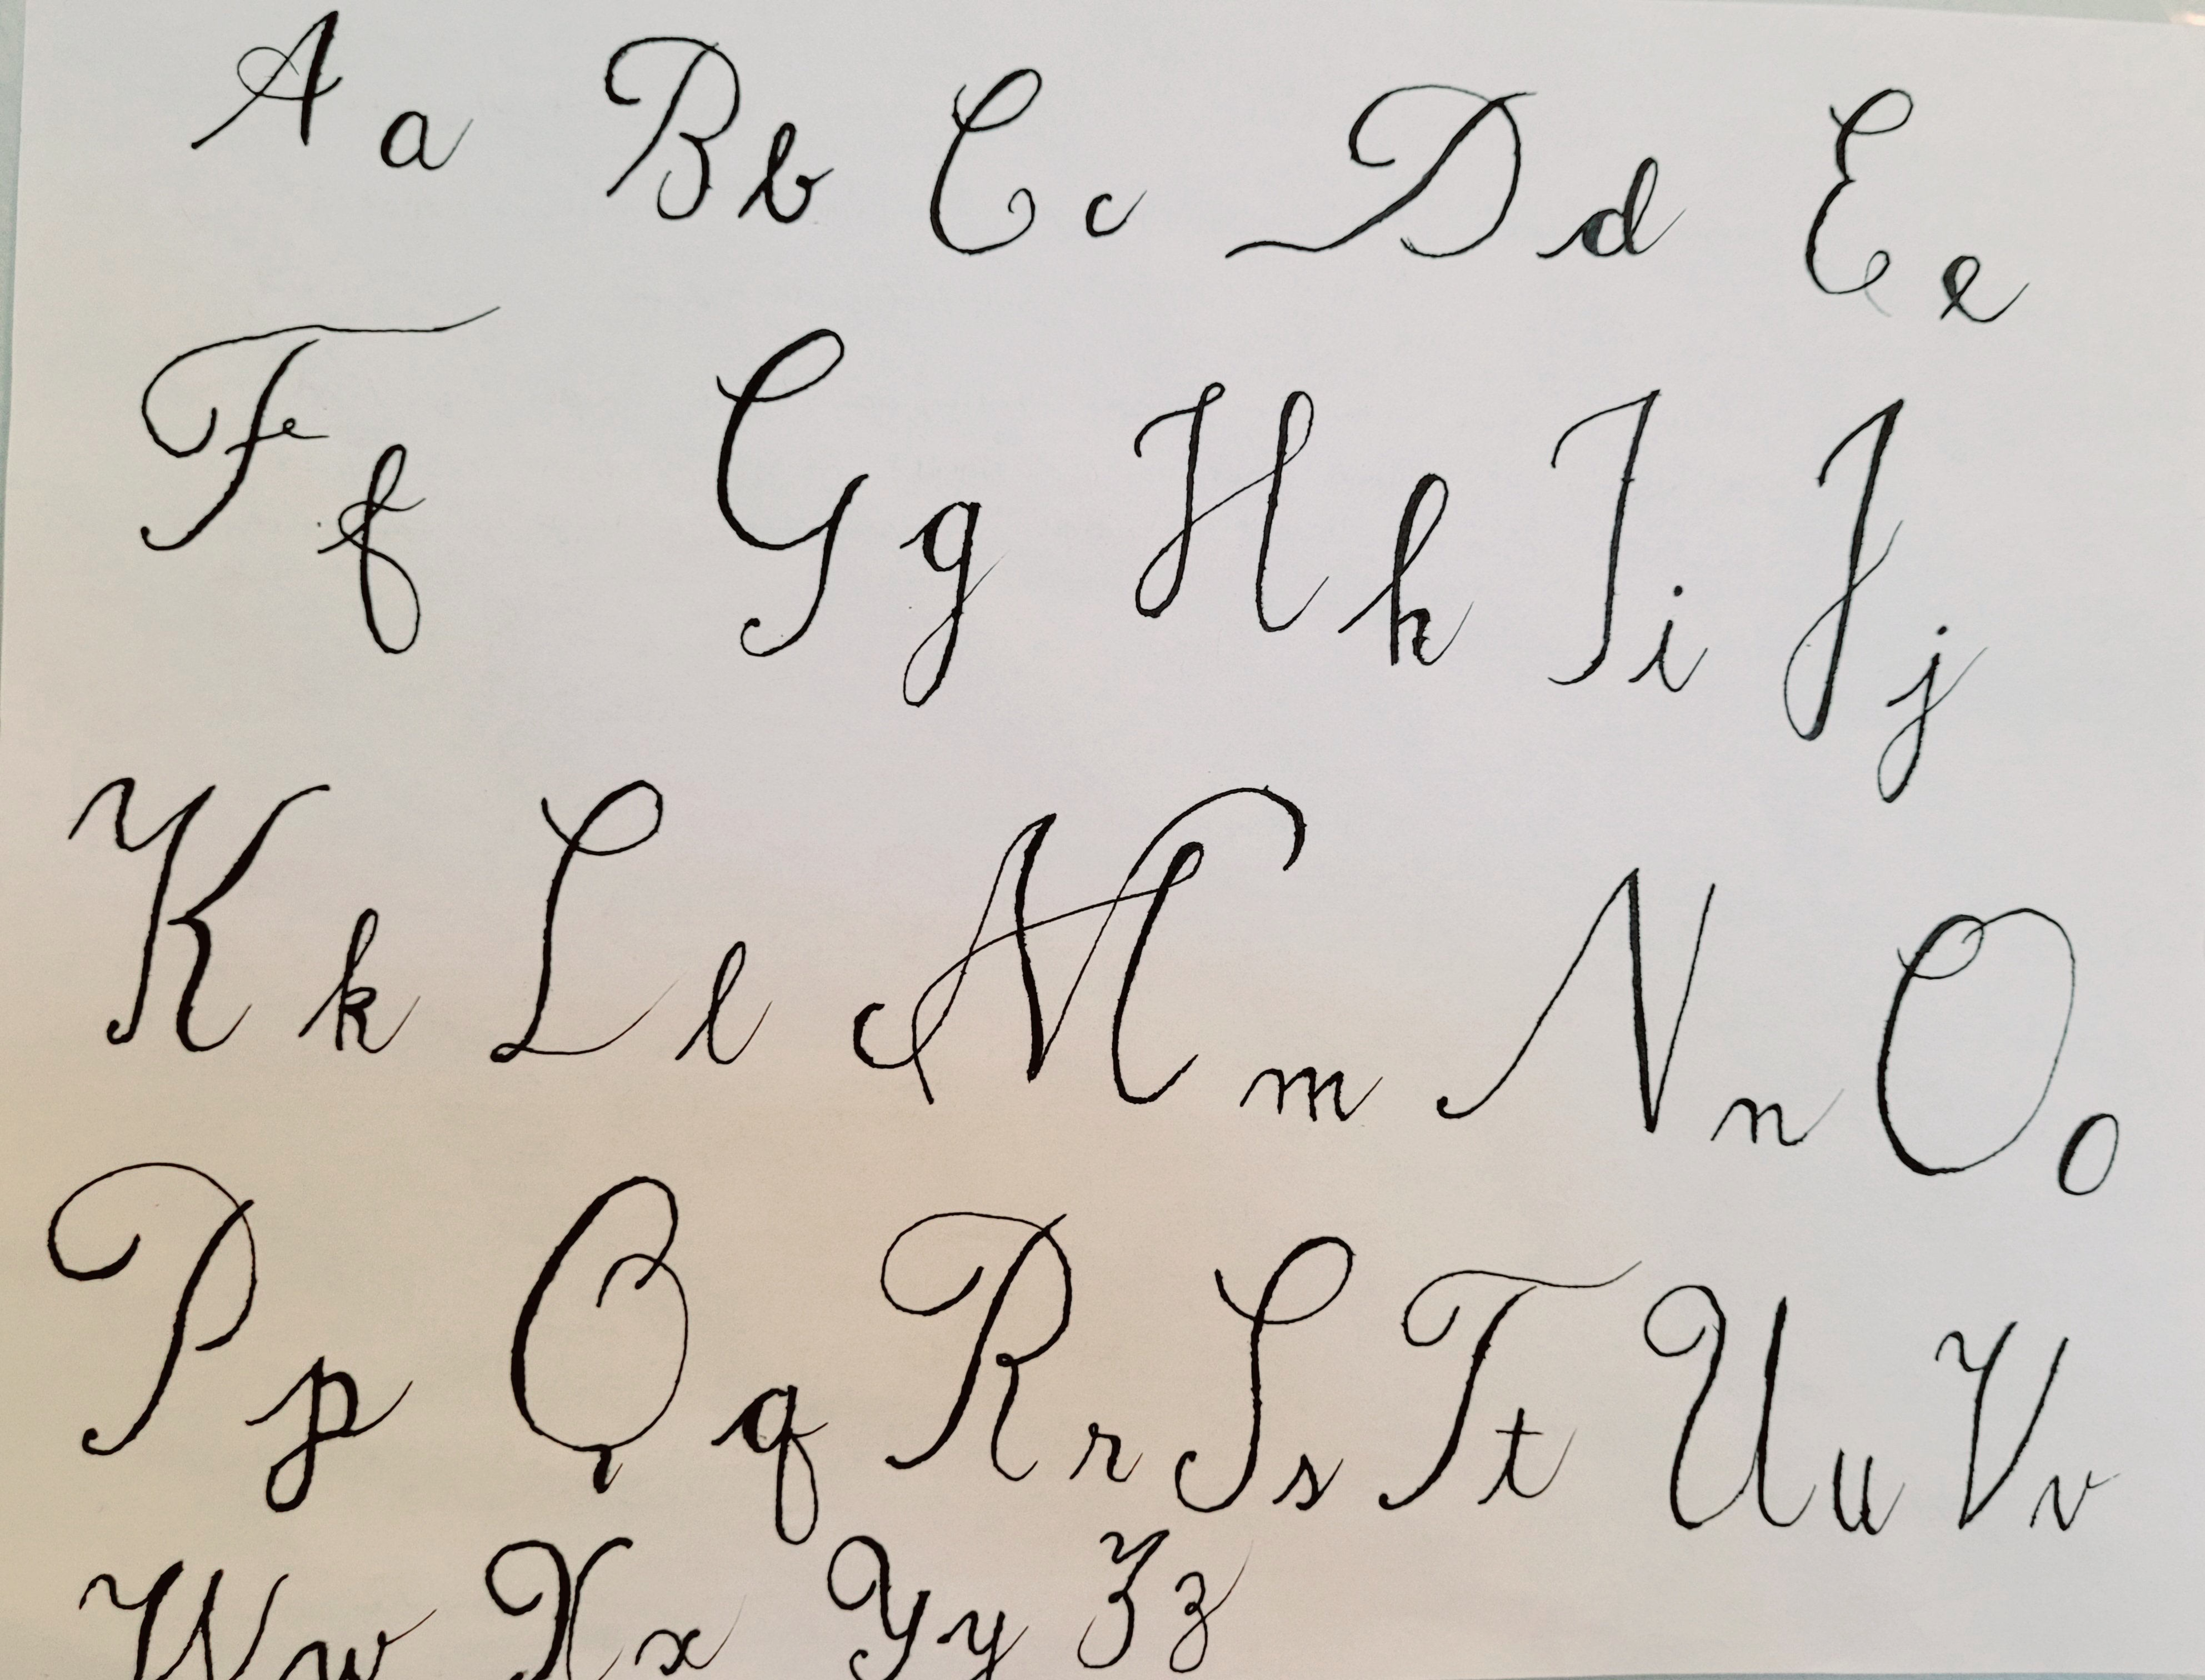 A a B b C c D d E e
F f G g H h I i J j
K k L l M m N n O o
P p Q q R r S s T t U u V v
W w X x Y y Z z